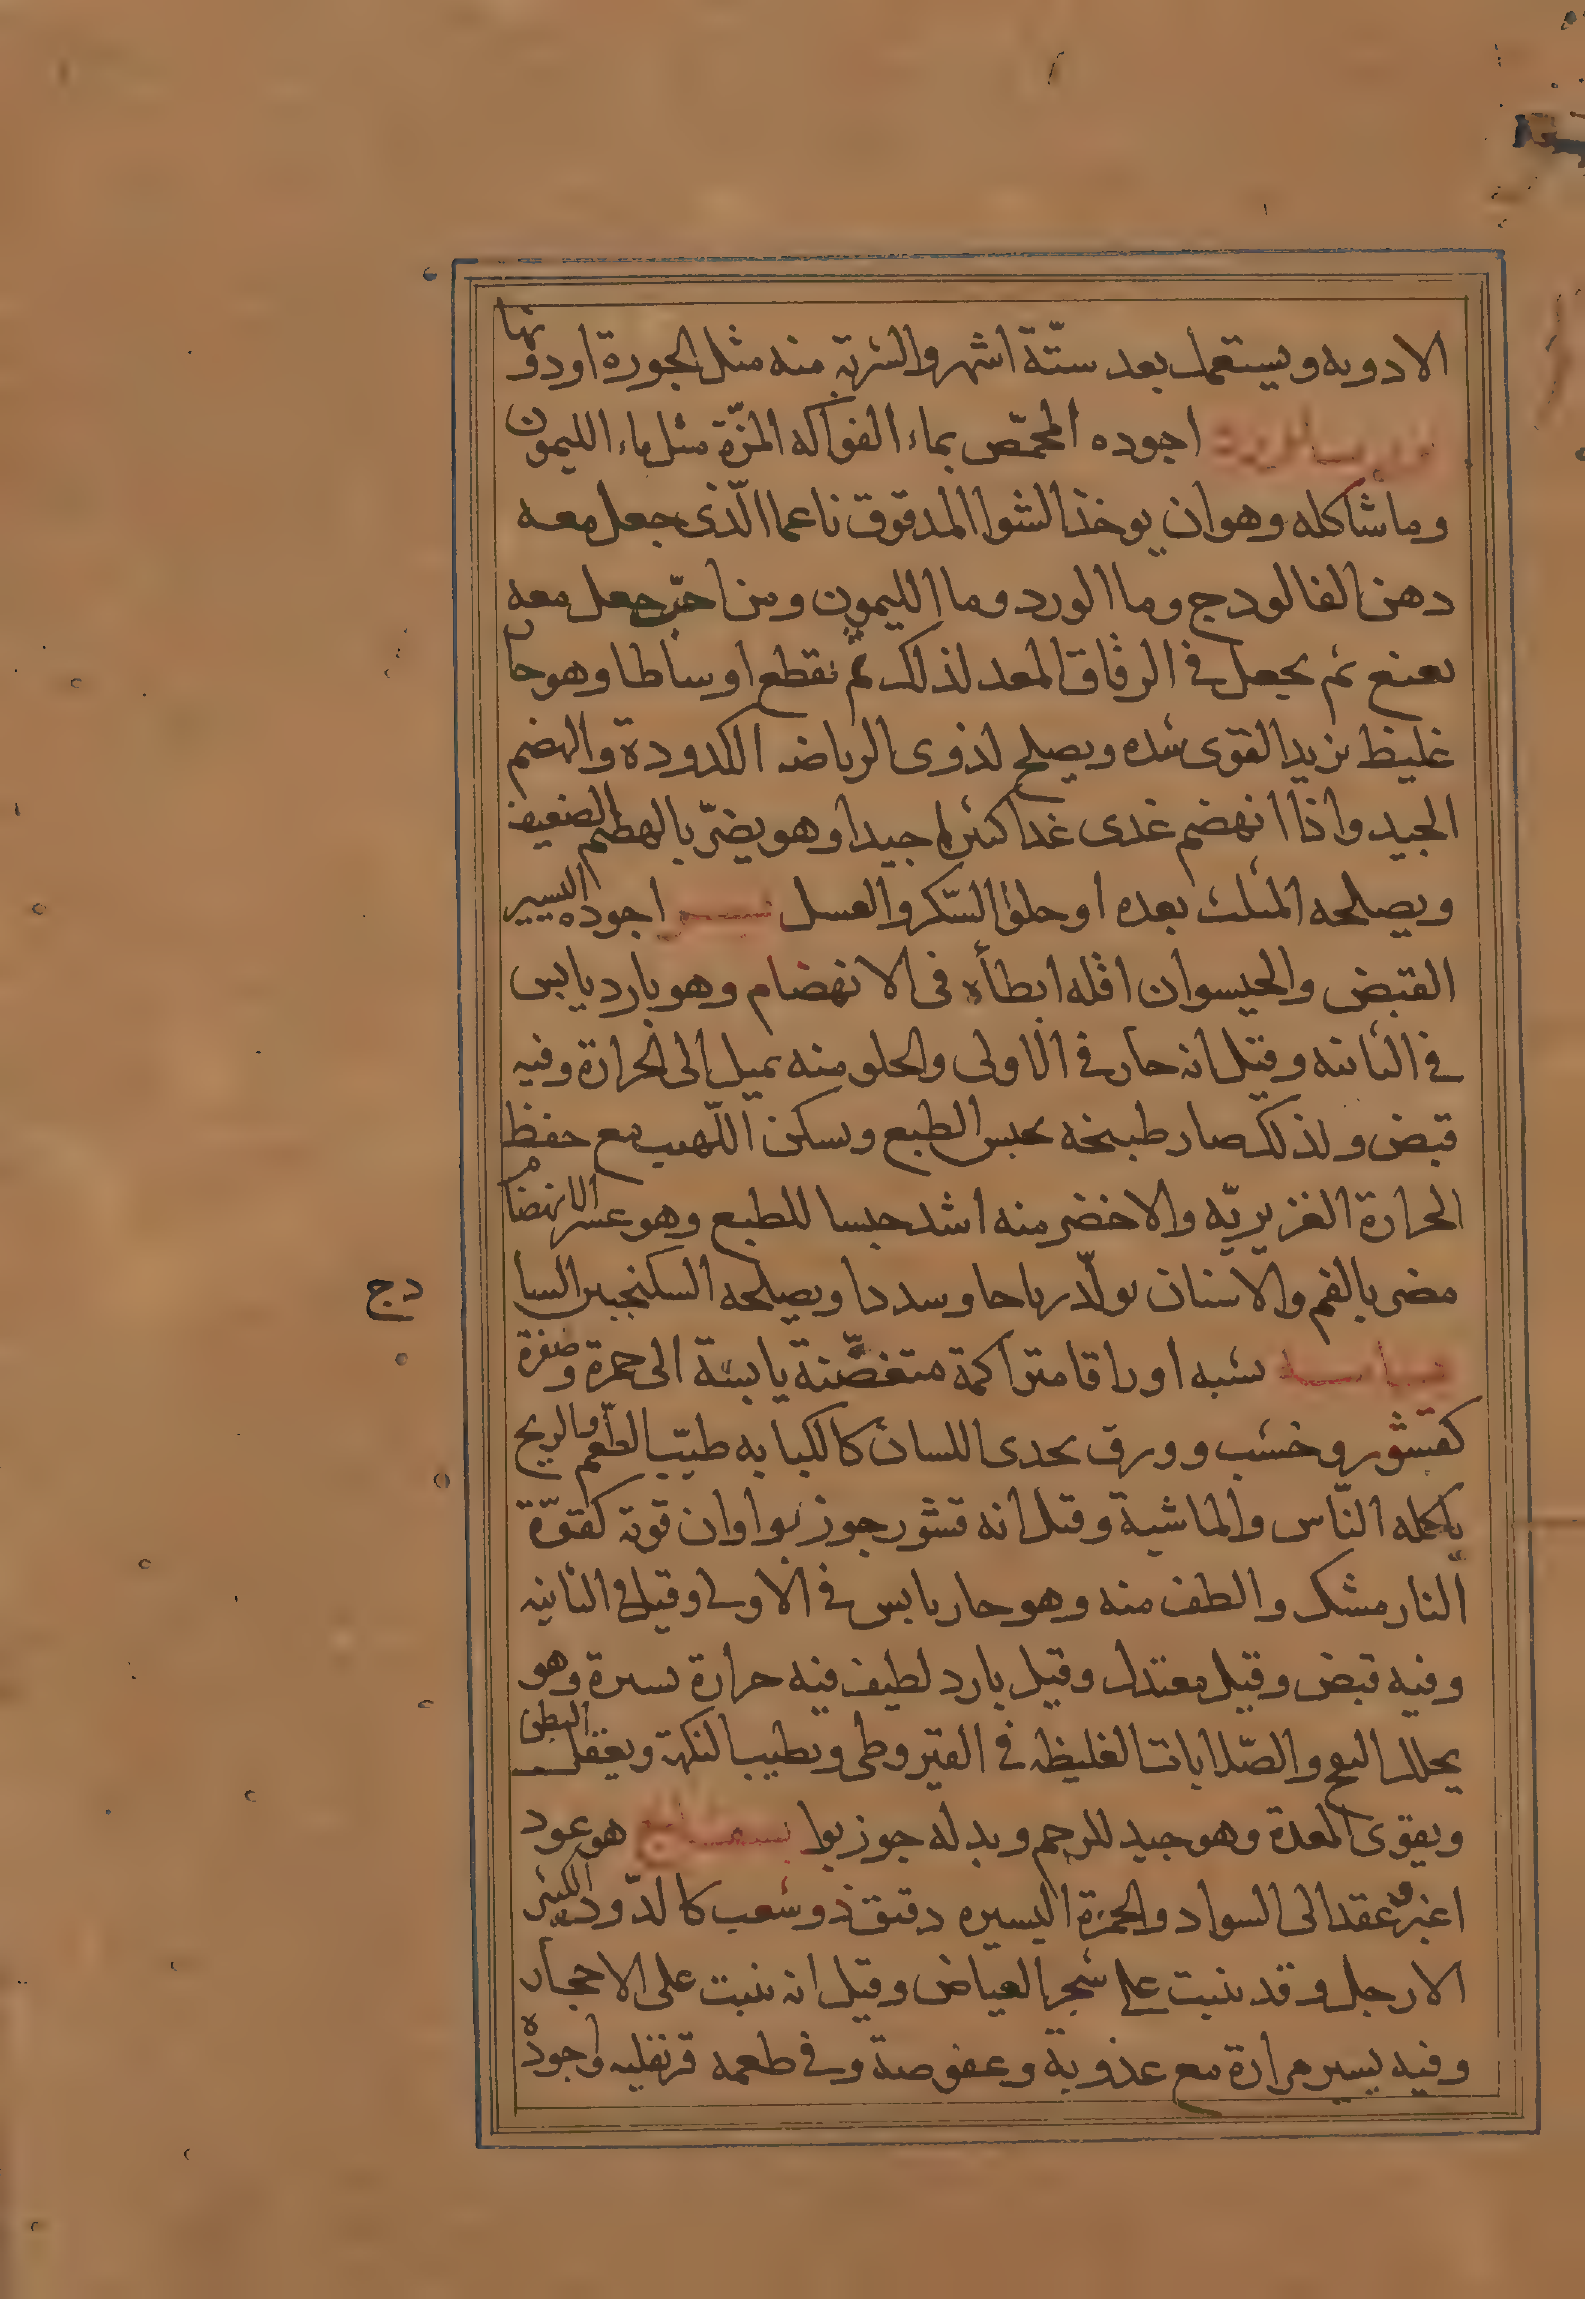 الادويه ويستعمل بعد ستّة اشهر والشربة منه مثل الجوزة او دونها
اجوده المحمّص بماء الفواكه المزّة مثل ماء الليمون
وما شاكله وهو ان يوخذ الشوا المدقوق ناعما الّذى جعل معه
دهن الفالودج وما الورد وما الليمون ومن احبّ جعل معه
نعنع ثم يجعل فى الرقاق المعد لذلك ثم يقطع اوساطا وهو حار
غليظ يزيد القوى شده ويصلح لذوى الرياضه الكدودة والهضم
الجيد واذا انهضم غدى غدا كثيرا جيدا وهو يضرّ بالهضم الضعيف
ويصلحه المثلث بعده او حلوا السّكر والعسل بسر اجوده اليسير
القبض والحيسوان اقله ابطأه فى الانهضام وهو بارد يابس
فى الثانيه وقيل انه حار فى الاولى والحلو منه يميل الى الحرارة وفيه
قبض ولذلك صار طبيخه يحبس الطبع ويسكن اللّهيب مع حفظ
الحرارة الغزيريّه والاخضر منه اشد حبسا للطبع وهو عسر الانهضام
مضر بالفم والاسنان يولّد رياحا وسددا ويصلحه السكنجبين السا
دج
بسباسه يشبه اوراقا متراكمة متغضّنة يابسة الى حمرة وصفرة
كقشور وخشب وورق يحدى اللسان كالكبابه طيّب الطّعم والريح
ياكله النّاس والماشية وقيل انه قشور جوز بوا وان قوته كقوّة
النار مشك والطف منه وهو حار يابس فى الاولى وقيل فى الثانيه
وفيه قبض وقيل معتدل وقيل بارد لطيف فيه حرارة يسيرة وهو
يحلل النفخ والصّلابات الغليظه فى القيروطى ويطيب النكهة ويعقل البطن
ويقوى المعدة وهو جيد للرحم وبدله جوز بوا بسفايج هو عود
اغبر وعقد الى السواد والحمرة اليسيره دقيق ذو شعب كالدّود الكثير
الارجل وقد ينبت على شجر الغياض وقيل انه ينبت على الاحجار
وفيه يسير مرارة مع عذوبة وعفوصة وفى طعمه قرنفليه واجوده